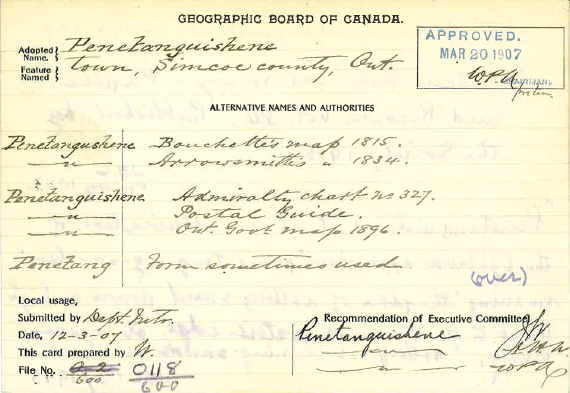 GEOGRAPHIC BOARD OF CANADA.
Adopted Name. } Penetanguishene
Feature Named } town, Simcoe county, Ont.
APPROVED.
MAR 20 1907
W.P.A.
CHAIRMAN
ALTERNATIVE NAMES AND AUTHORITIES
Penetangushene Bouchette's map 1815.
— " — Arrowsmith's " 1834.
Penetanguishene Admiralty chart no. 327.
— " — Postal Guide.
— " — Ont. Govt. map 1896.
Penetang form sometimes used.
(over)
Local usage,
Submitted by Dept. Intr.
Date, 12-3-07
This card prepared by W.
File No. 0-2 0118
600 600
Recommendation of Executive Committee
Penetanguishene
— " —
— " — W.P.A.